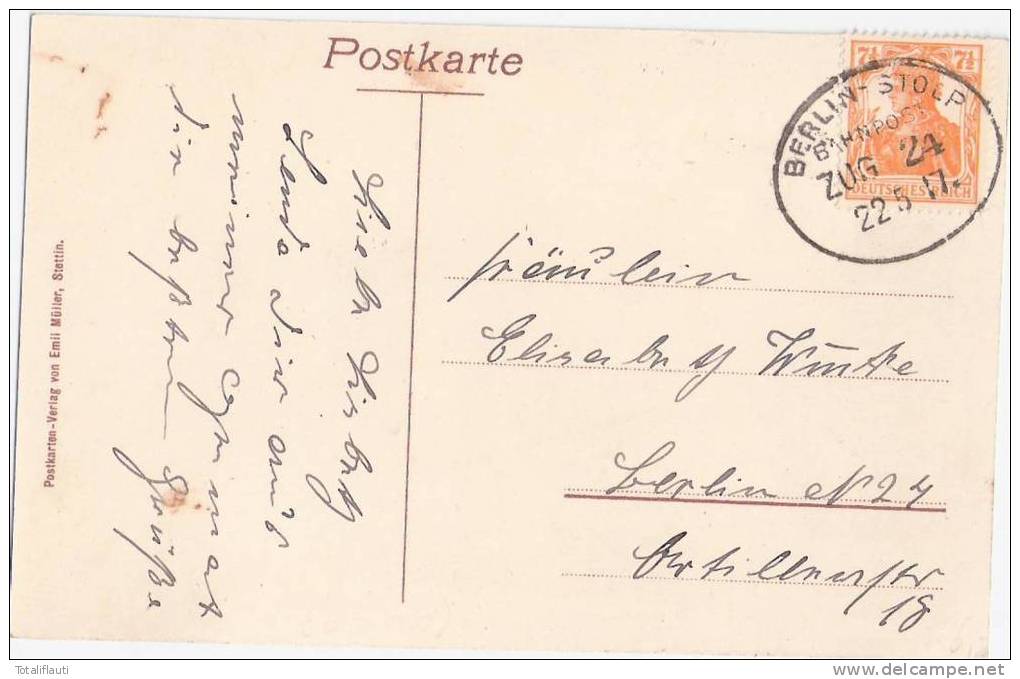 Postkarte
7½ 7½
DEUTSCHES REICH
BERLIN-STOLP
BAHNPOST
ZUG 24
22 5 17.
Liebe Lisbeth
Sende dir aus
meiner Heimat
die besten Grüße
Fräulein
Elisabeth
Berlin N 24
Artilleriestr
18
Postkarten-Verlag von Emil Müller, Stettin.
Totaliflauti
www.delcampe.net